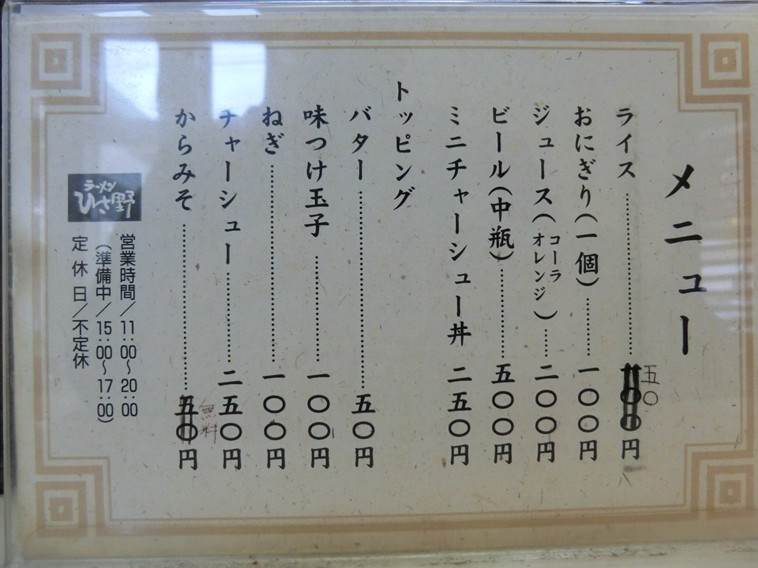 メニュー
ライス 五〇円
おにぎり(一個) 一〇〇円
ジュース(コーラ オレンジ) 二〇〇円
ビール(中瓶) 五〇〇円
ミニチャーシュー丼 二五〇円
トッピング
バター 五〇円
味つけ玉子 一〇〇円
ねぎ 一〇〇円
チャーシュー 二五〇円
からみそ 五〇円 無料
ラーメン
ひさ野
営業時間/11:00〜20:00
(準備中/15:00〜17:00)
定休日/不定休